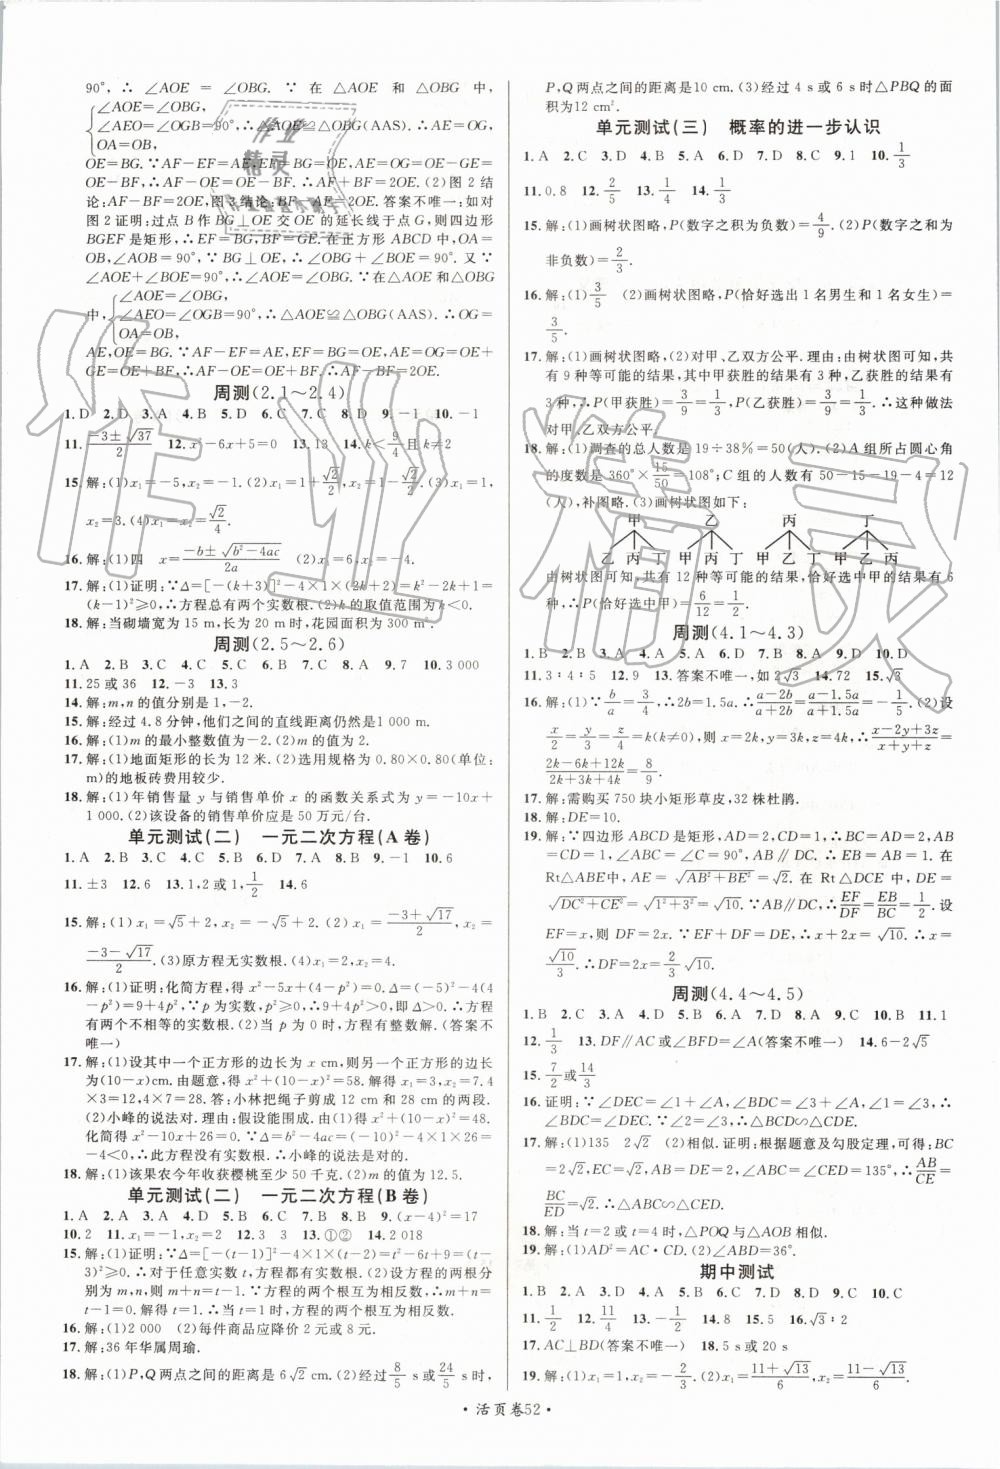 90°,∴ ∠AOE = ∠OBG. ∵ 在 △AOE 和 △OBG 中,
∠AOE=∠OBG,
∠AEO=∠OGB=90°,∴△AOE≌△OBG(AAS).∴AE=OG,
OA=OB,
OE=BG.∵AF-EF=AE,EF=BG=OE,AE=OG=OB-BG=
OE-BF,∴AF-OE=OE-BF,∴AF+BF=2OE.(2)图 2 结
论:AF-BF=2OE,图3 结论:BF-AF=2OE.答案不唯一:如对
图 2 证明:过点 B作 BG⊥OE 交 OE 的延长线于点 G,则四边形
BGEF 是矩形,∴EF=BG,BF=GE.在正方形 ABCD 中,OA=
OB,∠AOB=90°.∵BG⊥OE,∴∠OBG+∠BOE=90°.又∵
∠AOE+∠BOE=90°,∴∠AOE=∠OBG.∵在△AOE 和△OBG
∠AOE=∠OBG,
中,∠AEO=∠OGB=90°,∴△AOE≌△OBG(AAS).∴OG=
OA=OB,
AE,OE=BG.∵AF-EF=AE,EF=BG=OE,AE=OG=OE+
GE=OE+BF,∴AF-OE=OE+BF,∴AF-BF=2OE.
周测(2.1~2.4)
1.D 2.D 3.A 4.B 5.D 6.C 7.C 8.D 9.-1 10.-1
11.(-3±√37)/2 12.x²-6x+5=0 13.13 14.k<9/4且k≠2
15.解:(1)x₁=-5,x₂=-1.(2)x₁=1+√2/2,x₂=1-√2/2.(3)x₁=1,
x₂=3.(4)x₁=x₂=√2/4.
16.解:(1)四 x=(-b±√(b²-4ac))/2a (2)x₁=6,x₂=-4.
17.解:(1)证明:∵Δ=[-(k+3)]²-4×1×(2k+2)=k²-2k+1=
(k-1)²≥0,∴方程总有两个实数根.(2)k的取值范围为k<0.
18.解:当砌墙宽为 15 m,长为 20 m时,花园面积为 300 m².
周测(2.5~2.6)
1.A 2.B 3.C 4.C 5.C 6.B 7.C 8.A 9.7 10.3 000
11.25 或 36 12.-3 13.3
14.解:m,n的值分别是 1,-2.
15.解:经过 4.8 分钟,他们之间的直线距离仍然是1 000 m.
16.解:(1)m 的最小整数值为-2.(2)m 的值为 1.
17.解:(1)地面矩形的长为 12 米.(2)选用规格为 0.80×0.80(单位:
m)的地板砖费用较少.
18.解:(1)年销售量 y 与销售单价 x 的函数关系式为 y=-10x+
1 000.(2)该设备的销售单价应是 50 万元/台.
单元测试(二) 一元二次方程(A 卷)
1.A 2.C 3.D 4.A 5.B 6.B 7.A 8.B 9.-1 10.6
11.±3 12.6 13.1,2或 1,1/2 14.6
15.解:(1)x₁=√5+2,x₂=-√5+2.(2)x₁=(-3+√17)/2,x₂=
(-3-√17)/2.(3)原方程无实数根.(4)x₁=2,x₂=-1.
16.解:(1)证明:化简方程,得 x²-5x+(4-p²)=0.Δ=(-5)²-4(4-
p²)=9+4p².∵p为实数,p²≥0,∴9+4p²>0,即Δ>0.∴方程
有两个不相等的实数根.(2)当 p 为 0时,方程有整数解.(答案不
唯一)
17.解:(1)设其中一个正方形的边长为 x cm,则另一个正方形的边长
为(10-x)cm.由题意,得 x²+(10-x)²=58.解得 x₁=3,x₂=7.4
×3=12,4×7=28.答:小林把绳子剪成 12 cm 和 28 cm 的两段.
(2)小峰的说法对.理由:假设能围成.由(1)得,x²+(10-x)²=48.
化简得 x²-10x+26=0.∵Δ=b²-4ac=(-10)²-4×1×26=
-4<0,∴此方程没有实数根.∴小峰的说法是对的.
18.解:(1)该果农今年收获樱桃至少 50 千克.(2)m 的值为 12.5.
单元测试(二) 一元二次方程(B 卷)
1.A 2.A 3.A 4.D 5.B 6.B 7.C 8.B 9.(x-4)²=17
10.2 11.x₁=-1,x₂=-3 12.3 13.①② 14.2 018
15.解:(1)证明:∵Δ=[-(t-1)]²-4(t-2)=t²-6t+9=(t-3)²≥
0,∴对于任意实数 t,方程都有实数根.(2)设方程的两根分别为
m,n,则 m+n=t-1.∵方程的两个根互为相反数,∴m+n=t-1=
0.解得 t=1.∴当 t=1 时,方程的两个根互为相反数.
16.解:(1)2 000 (2)每件商品应降价 2 元或 8 元.
17.解:36 年华属周瑜.
18.解:(1)P,Q 两点之间的距离是 6√2 cm.(2)经过8/5 s或24/5 s时,
P,Q 两点之间的距离是10 cm.(3)经过 4 s或 6 s时△PBQ 的面
积为12 cm².
单元测试(三) 概率的进一步认识
1.A 2.C 3.D 4.B 5.A 6.D 7.D 8.C 9.1 10.1/3
11.0.8 12.2/5 13.1/4 14.1/3
15.解:(1)画树状图略,P(数字之积为负数)=4/9.(2)P(数字之和为
非负数)=2/3.
16.解:(1)3/5 (2)画树状图略,P(恰好选出 1 名男生和 1 名女生)=
3/5.
17.解:(1)画树状图略,(2)对甲、乙双方公平.理由:由树状图可知,共
有 9 种等可能的结果,其中甲获胜的结果有 3 种,乙获胜的结果有
3 种,∴P(甲获胜)=3/9=1/3,P(乙获胜)=3/9=1/3.∴这种做法
对甲、乙双方公平.
18.解:(1)调查的总人数是 19÷38%=50(人).(2)A 组所占圆心角
的度数是 360°×15/50=108°;C 组的人数有 50-15-19-4=12
(人),补图略.(3)画树状图如下:
甲 乙 丙 丁
乙 丙 丁 甲 丙 丁 甲 乙 丁 甲 乙 丙
由树状图可知,共有 12 种等可能的结果,恰好选中甲的结果有 6
种,∴P(恰好选中甲)=6/12=1/2.
周测(4.1~4.3)
1.B 2.C 3.A 4.B 5.C 6.A 7.C 8.A 9.D 10.D
11.3∶4∶5 12.9 13.答案不唯一,如 2√3 14.72 15.√3
16.解:(1)∵b/a=3/4,∴2b=1.5a.∴(a-2b)/(a+2b)=(a-1.5a)/(a+1.5a)=-1/5.(2)设
x/2=y/3=z/4=k(k≠0),则 x=2k,y=3k,z=4k.∴(x-2y+3z)/(x+y+z)=
(2k-6k+12k)/(2k+3k+4k)=8/9.
17.解:需购买 750 块小矩形草皮,32 株杜鹃.
18.解:DE=10.
19.解:∵四边形 ABCD 是矩形,AD=2,CD=1,∴BC=AD=2,AB
=CD=1,∠ABC=∠C=90°,AB∥DC.∴EB=AB=1.在
Rt△ABE中,AE=√(AB²+BE²)=√2.在 Rt△DCE 中,DE=
√(DC²+CE²)=√(1²+3²)=√10.∵AB∥DC,∴EF/DF=EB/BC=1/2.设
EF=x,则 DF=2x.∵EF+DF=DE,∴x+2x=√10.∴x=
√10/3.∴DF=2x=2/3√10.
周测(4.4~4.5)
1.B 2.C 3.A 4.D 5.D 6.A 7.A 8.D 9.C 10.B 11.1
12.1/3 13.DF∥AC 或∠BFD=∠A(答案不唯一) 14.6-2√5
15.7/2或14/3
16.证明:∵∠DEC=∠1+∠A,∠BDC=∠3+∠A,∠1=∠3,∴
∠BDC=∠DEC.∵∠2=∠3,∴△BCD∽△CDE.
17.解:(1)135 2√2 (2)相似.证明:根据题意及勾股定理,可得:BC
=2√2,EC=√2,AB=DE=2,∠ABC=∠CED=135°,∴AB/CE=
BC/ED=√2.∴△ABC∽△CED.
18.解:当 t=2 或 t=4 时,△POQ 与△AOB 相似.
19.解:(1)AD²=AC·CD.(2)∠ABD=36°.
期中测试
1.B 2.C 3.A 4.D 5.B 6.C 7.C 8.A 9.D 10.C
11.1/2 12.11/4 13.-1/2 14.8 15.5 16.√3∶2
17.AC⊥BD(答案不唯一) 18.5 s或 20 s
19.解:(1)x₁=-2/3,x₂=1.(2)x₁=(11+√13)/6,x₂=(11-√13)/6.
·活页卷52·
作业精灵